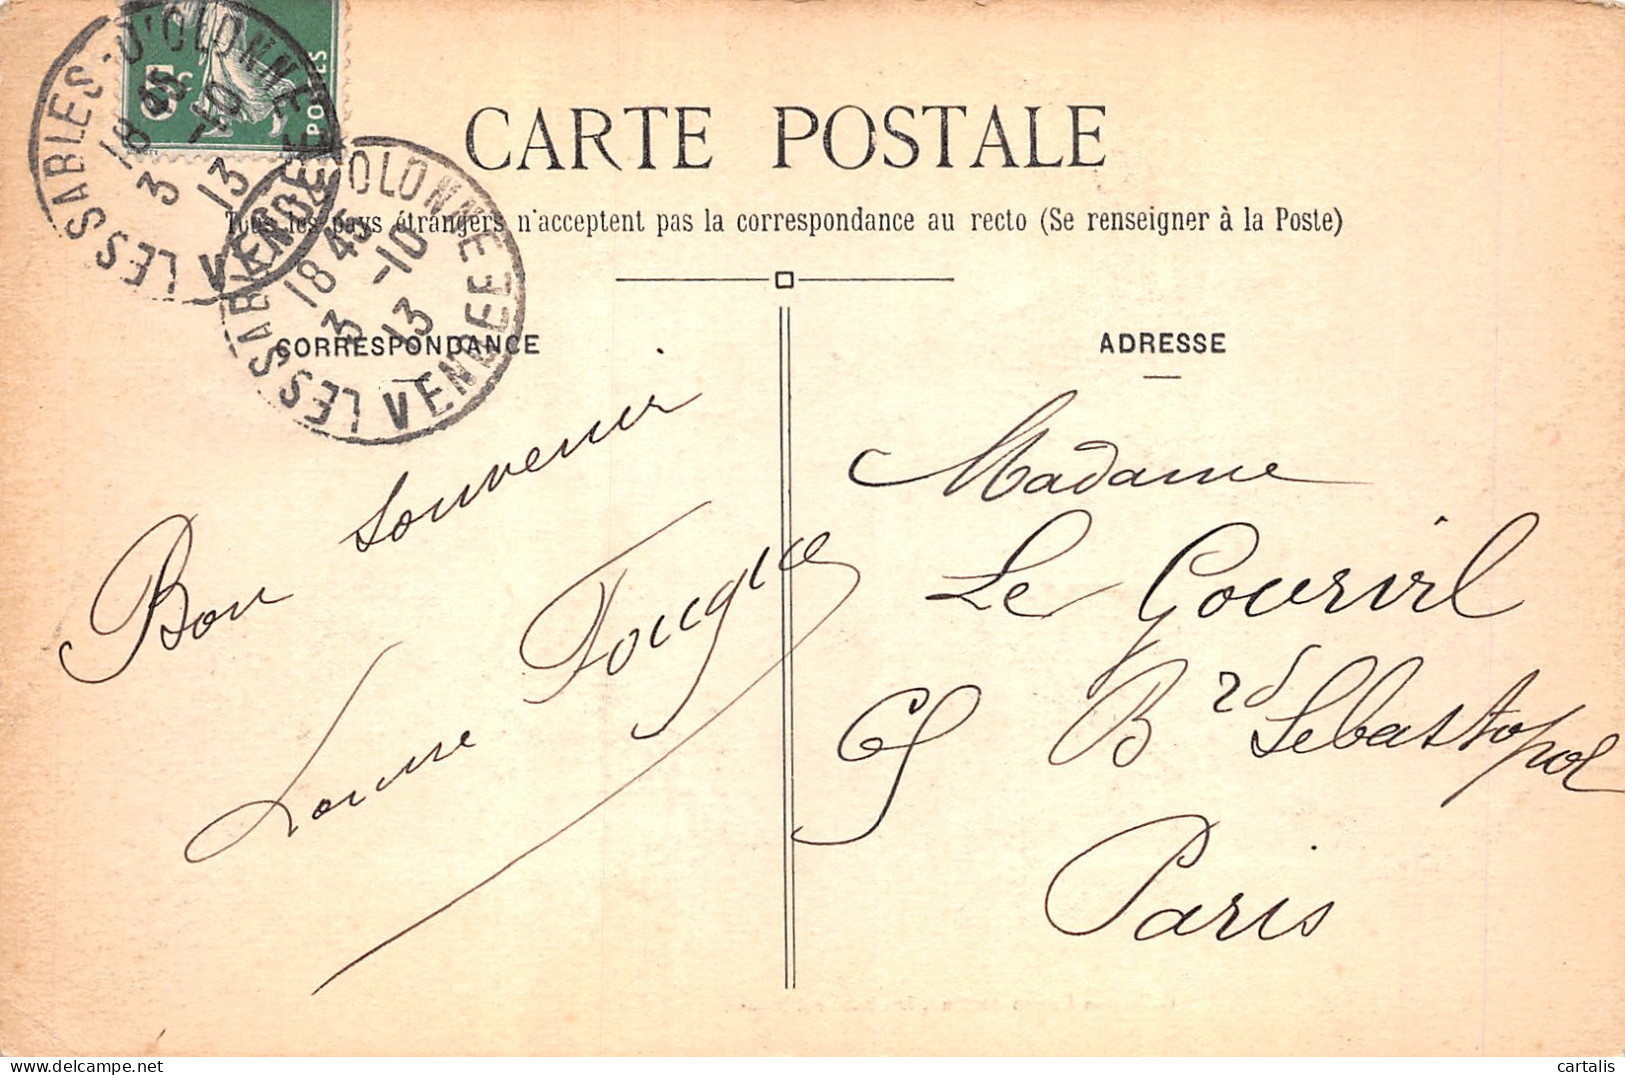 5c
POSTES
LES SABLES-D'OLONNE
18 45
3 -10
13
VENDEE
OLONNE
18 45
3 -10
13
LES SABLES
VENDEE
CARTE POSTALE
Tous les pays étrangers n'acceptent pas la correspondance au recto (Se renseigner à la Poste)
CORRESPONDANCE
ADRESSE
Bon souvenir
Madame
Le Gourvil
Bd Sebastopol
Paris
cartalis